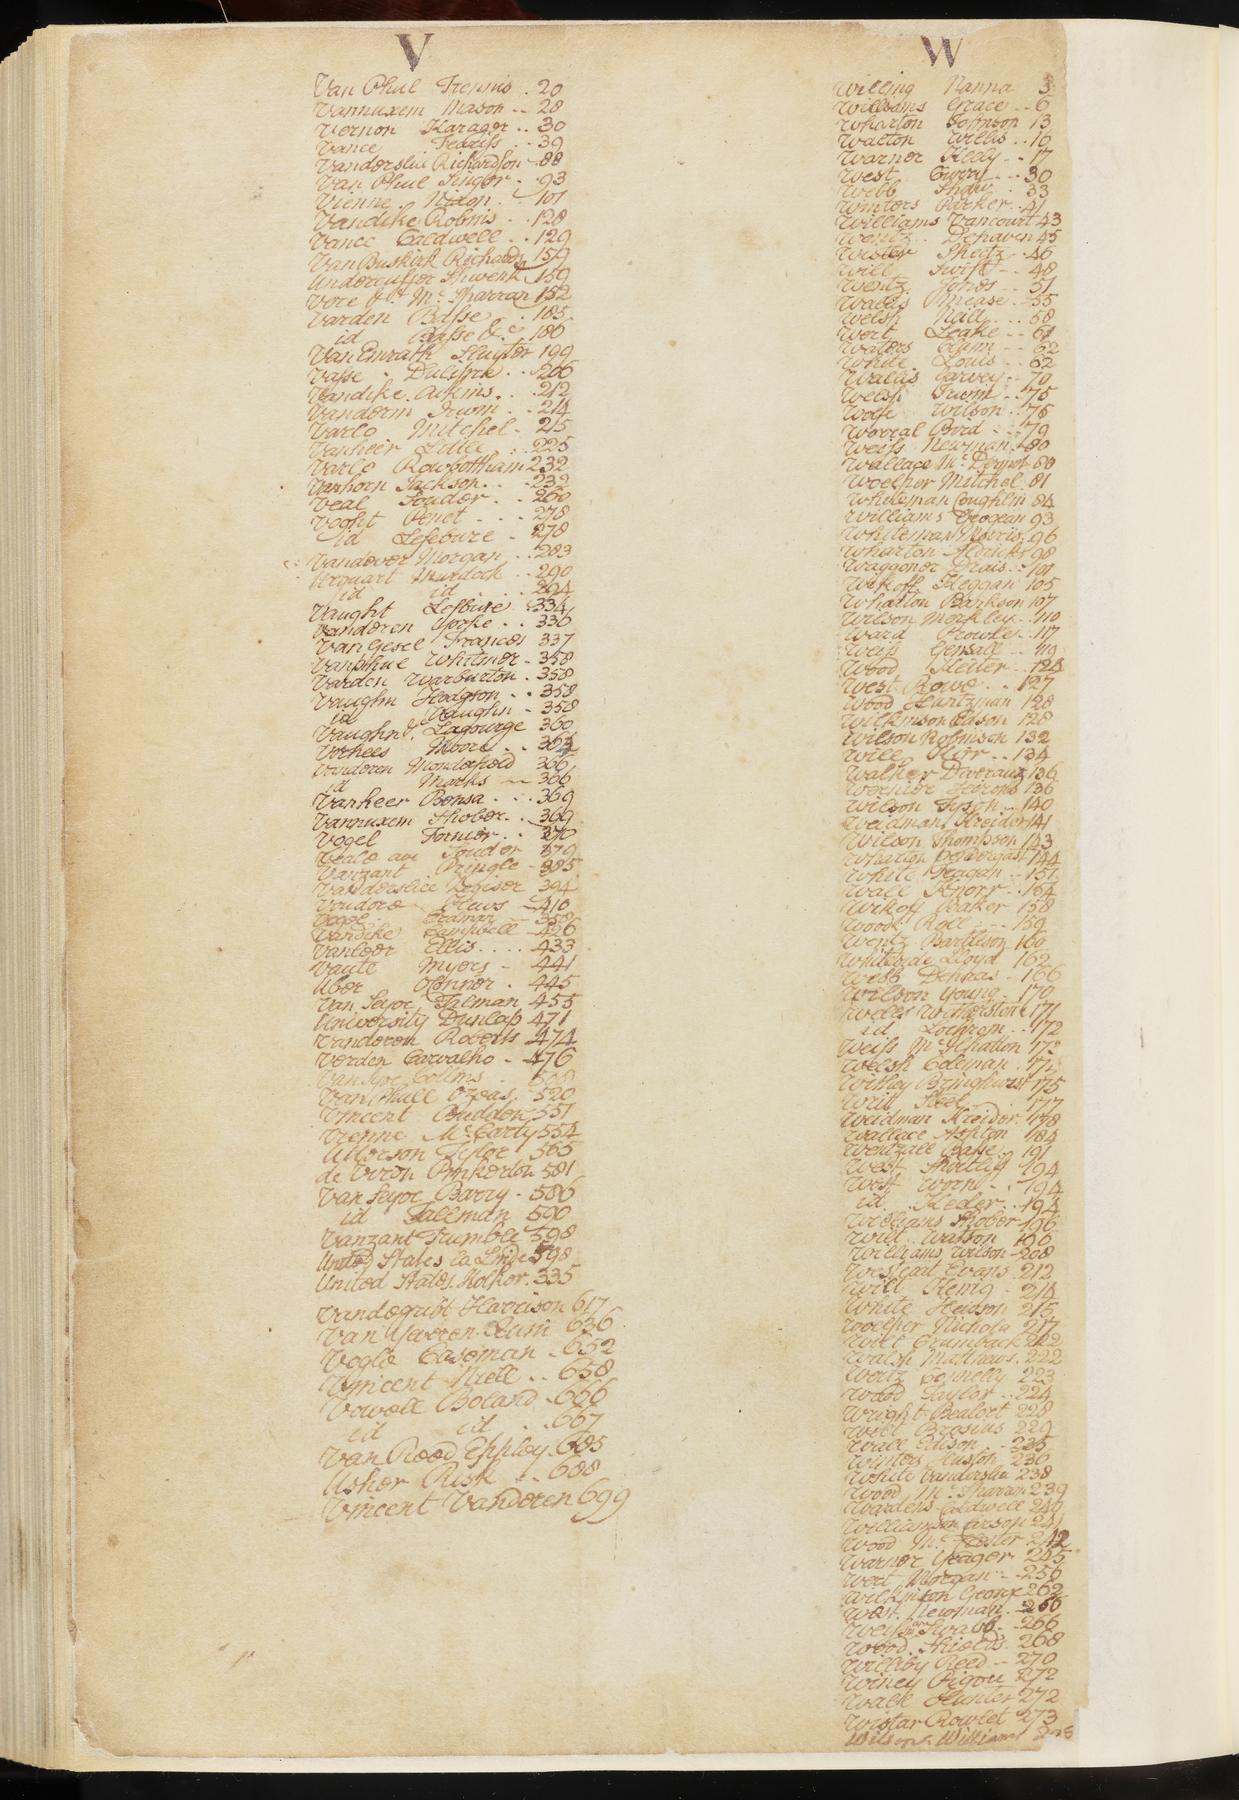 V
Van Phul Frennis . 20
Vannuxem Mason -- 28
Vernon Karager .. 30
Vance 39
Vanderslie Richardson 88
Van Phul Singer . 93
Vienne Nixon 101
Vandike Robins .. 128
Vance Caldwell .. 129
Van Buskirk Richards 159
Underuffer Shwenk 159
Vore &c Mc Sharran 152
Varden Basse . 185.
id Basse &c 186
Van Emrath Sluyter 199
Vasse . 206
Vandike Atkins . . 212
Vanderin Irwin . . 214
Varlo Mitchel - 215
Vanheir 225
Varlo Rowbottham 232
Vanhorn Jackson . . 232
Veal Souder . . 260
Voght Penet . . . 278
id Lefebure - 278
Vandever Morgan . . 283
Urquart Murdock . . 290
id id . . . 294
Vaught Lefbure . 334
Vanderen Yorke . . 336
Van Gesel Frances 337
Vanphul Whitmer - 358
Varden Warburton . 358
Vaughn Hodgson . . 358
id Vaughn - 358
Vaughn & Lagourge 360
Vorhees Moore . . 364
Vanderen 366
id Marks -- 366
Vanheer Bonsa . . . 369
Vannuxem Shober . . 369
Vogel Forner . . 370
Veale Souder 379
Vanzant Pringle - 385
Vanderslice 394
Hews - 410
358
Vandike Campbell - 426
Vanloor Ellis . . . . 433
Vaute Myers - 441
Uber O'Connor . 445
Van Seyoc Tilman 455
University Dunlap 471
Vanderen Roberts 474
Verden Carvalho - 476
Collins
Van Phull Ozeas . 520
Vincent Budden 551
Vienne Mc Carty 554
565
de Viron Pinkerton 581
Van Seyoc Barry . 586
id Tallman 590
Vanzant Trumble 598
United States 598
United States Holker . 335
Vandegrift Harrison 617
636
Vogle Caseman . 652
Vincent Niell . . 658
Vowell Boland - 666
id id . . 667
Van Reed Eppley . 685
Usher Risk . . 688
Vincent Vanderen 699
W
Willing Hanna 3
Williams Grace . . 6
Wharton Johnson 13
Walton Willis . . 16
Warner Kelly . . 17
West Curry . . . 30
Webb Shaw . 33
Winters Parker . 41
Williams Vancourt 43
Wentz . . Dehaven 45
Wister Sheetz . 46
Will Swift - - 48
Wentz Jones . . 51
Wallis Mease . . 55
Welsh Nail . . . 58
Wert Leake - - 61
Waters - 62
White Louis . . 62
Wallis Garvey . . 70
Welsh - 75
Wolfe Wilson . . 76
Worral Bird . . . 79
Weiss Newman . 80
Wallace Mc Dermot 80
Woelper Mitchel . 81
Whiteman Coughlin 84
Williams Geogean 93
Whiteman Morris . 96
Wharton Aldricks 98
Waggoner Drais . . 101
Wikoff Keggan 105
Wharton Bankson 107
Wilson Merkley . . 110
Ward Prowle . . 117
Weiss Gensall . . 119
Wood Keiler . . 124
West Rowe . . 127
Wood Huntzman 128
Wilkinson Eason 128
Wilson Robinson 132
Will Kerr . . 134
Walker Deveraux 136
136
Wilson Tyson . . 140
Weidman Kreider 141
Wilson Thompson 143
Wharton 144
White Feagan . . 151
Wall Knorr . . 154
Wikoff Baker 158
Wood Roll . . . 159
Wentz Bartleson 160
Whiteside Lloyd 162
Webb Dehaas - 166
Wilson Young . . 170
Wells Witherstone 171
id Cochran . . 172
Weiss Mc Ilhatton 173
Welsh Coleman
Withey Bringhurst 175
Will Steel 177
Weidman Kreider . 178
Wallace Ashton 184
Wentzall Basse . 191
West Shutliff 194
West . 194
id Keeler . . 194
Williams Shober 196
Will . Watson 196
Williams Wilson - 208
Westcart Evans 212
Will Kenig - 214
White Hewson 215
Woelper Nichola 217
Will Crumback 222
Walsh Matthews . 222
Wertz Connelly 223
Wood Taylor . . 224
Wright Bealert 228
Will Brosius 229
Wall Edison . . 235
Winters Huston 236
White Vanderslie 238
Wood Mc Sharran 239
Wardens Caldwell 240
Williamson Carson 241
Wood Mc 242
Warner Yeager 245
Wert Morgan . . 256
Wilkinson George 262
West Newman . 266
Weiss Swabb . . 266
Wood Shields . 268
Willliby Reed - - 270
Winey Pigou 272
Walk Hunter 272
Wistar Rowlet 273
Wilson . William